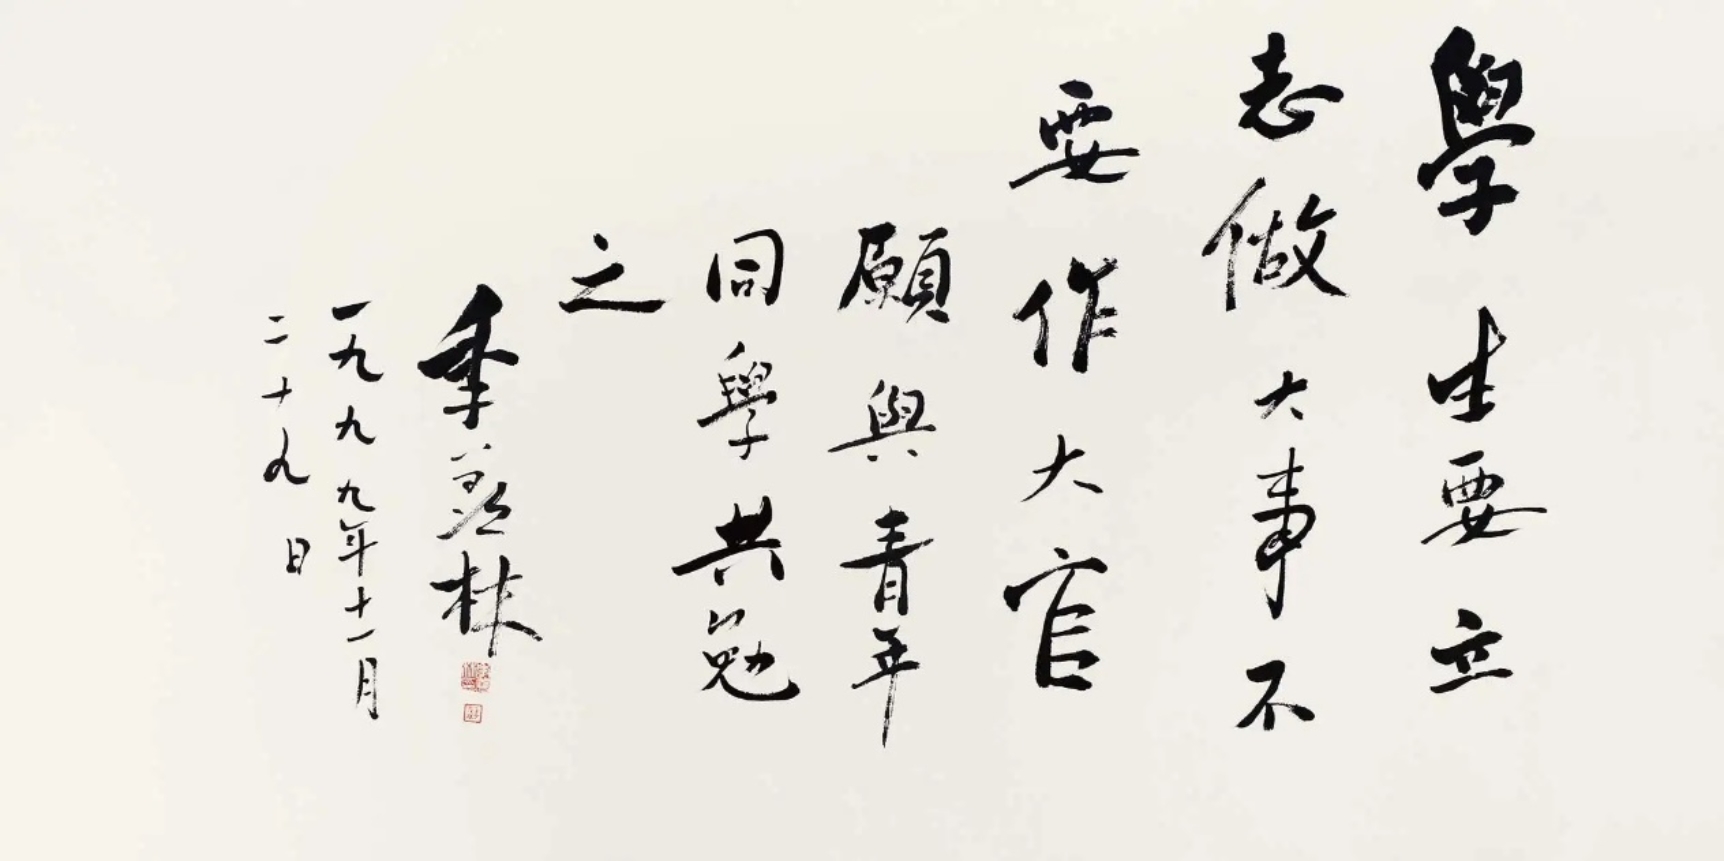 學生要立
志做大事不
要作大官
願與青年
同學共勉
之
季羡林
一九九九年十一月
二十九日